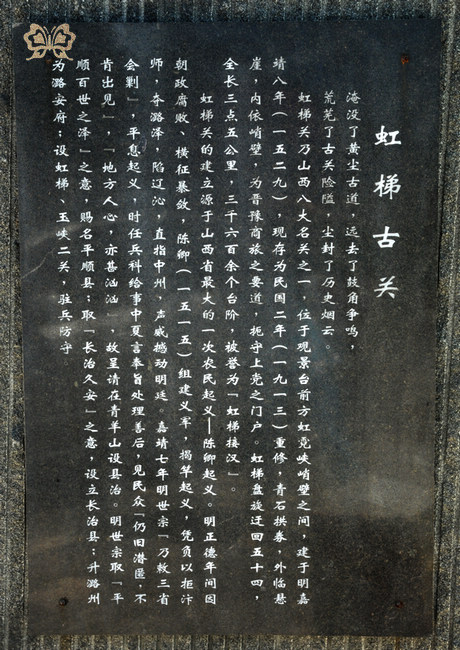 虹梯古关
淹没了黄尘古道，远去了鼓角争鸣，
荒芜了古关险隘，尘封了历史烟云
虹梯关乃山西八大名关之一，位于观景台前方虹霓峡峭壁之间，建于明嘉
靖八年（一五二九），现存为民国二年（一九一三）重修，青石拱券，外临悬
崖，内依峭壁，为晋豫商旅之要道，扼守上党之门户。虹梯盘旋迂回五十四，
全长三点五公里，三千六百余个台阶，被誉为「虹梯接汉」。
虹梯关的建立源于山西省最大的一次农民起义——陈卿起义。明正德年间因
朝政腐败、横征暴敛，陈卿（一五一五）组建义军，揭竿起义，凭负以拒汴
师，夺潞泽，陷辽沁，直指中州，声威撼动明廷。嘉靖七年明世宗「乃敕三省
会剿」，平息起义，时任兵科给事中夏言奉旨处理善后，见民众「仍旧潜匿，不
肯出见」，「地方人心，亦甚汹汹」，故呈请在青羊山设县治。明世宗取「平
顺百世之泽」之意，赐名平顺县；取「长治久安」之意，设立长治县；升潞州
为潞安府；设虹梯、玉峡二关，驻兵防守